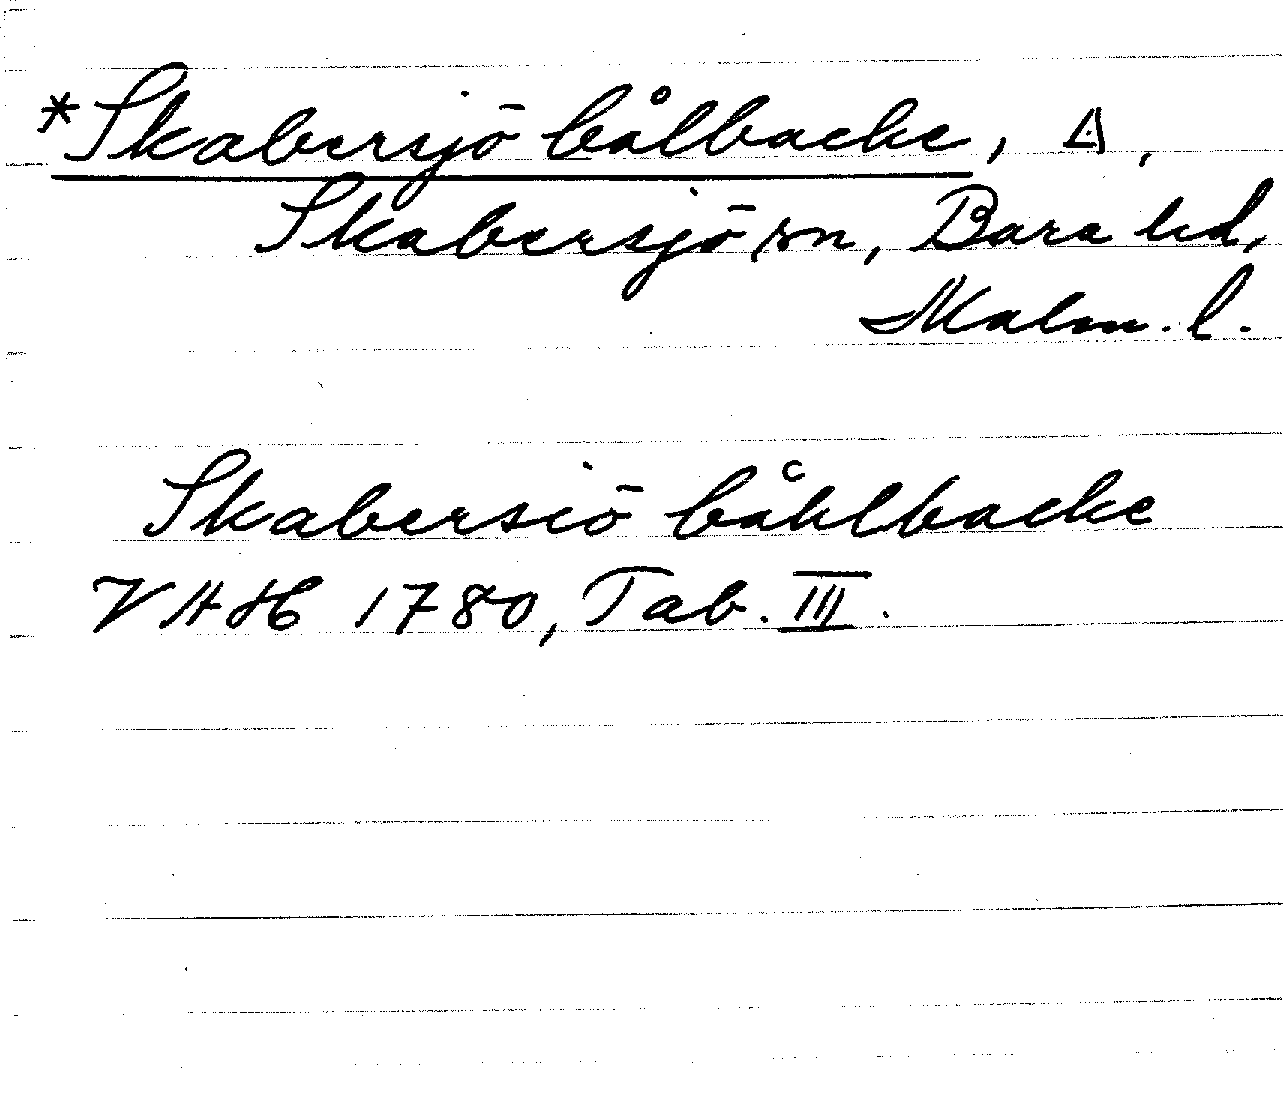 *Skabersjö bålbacke, ∆,
Skabersjö sn, Bara hd,
Malm. l.
Skabersiö båhlbacke
VAH 1780, Tab. III.